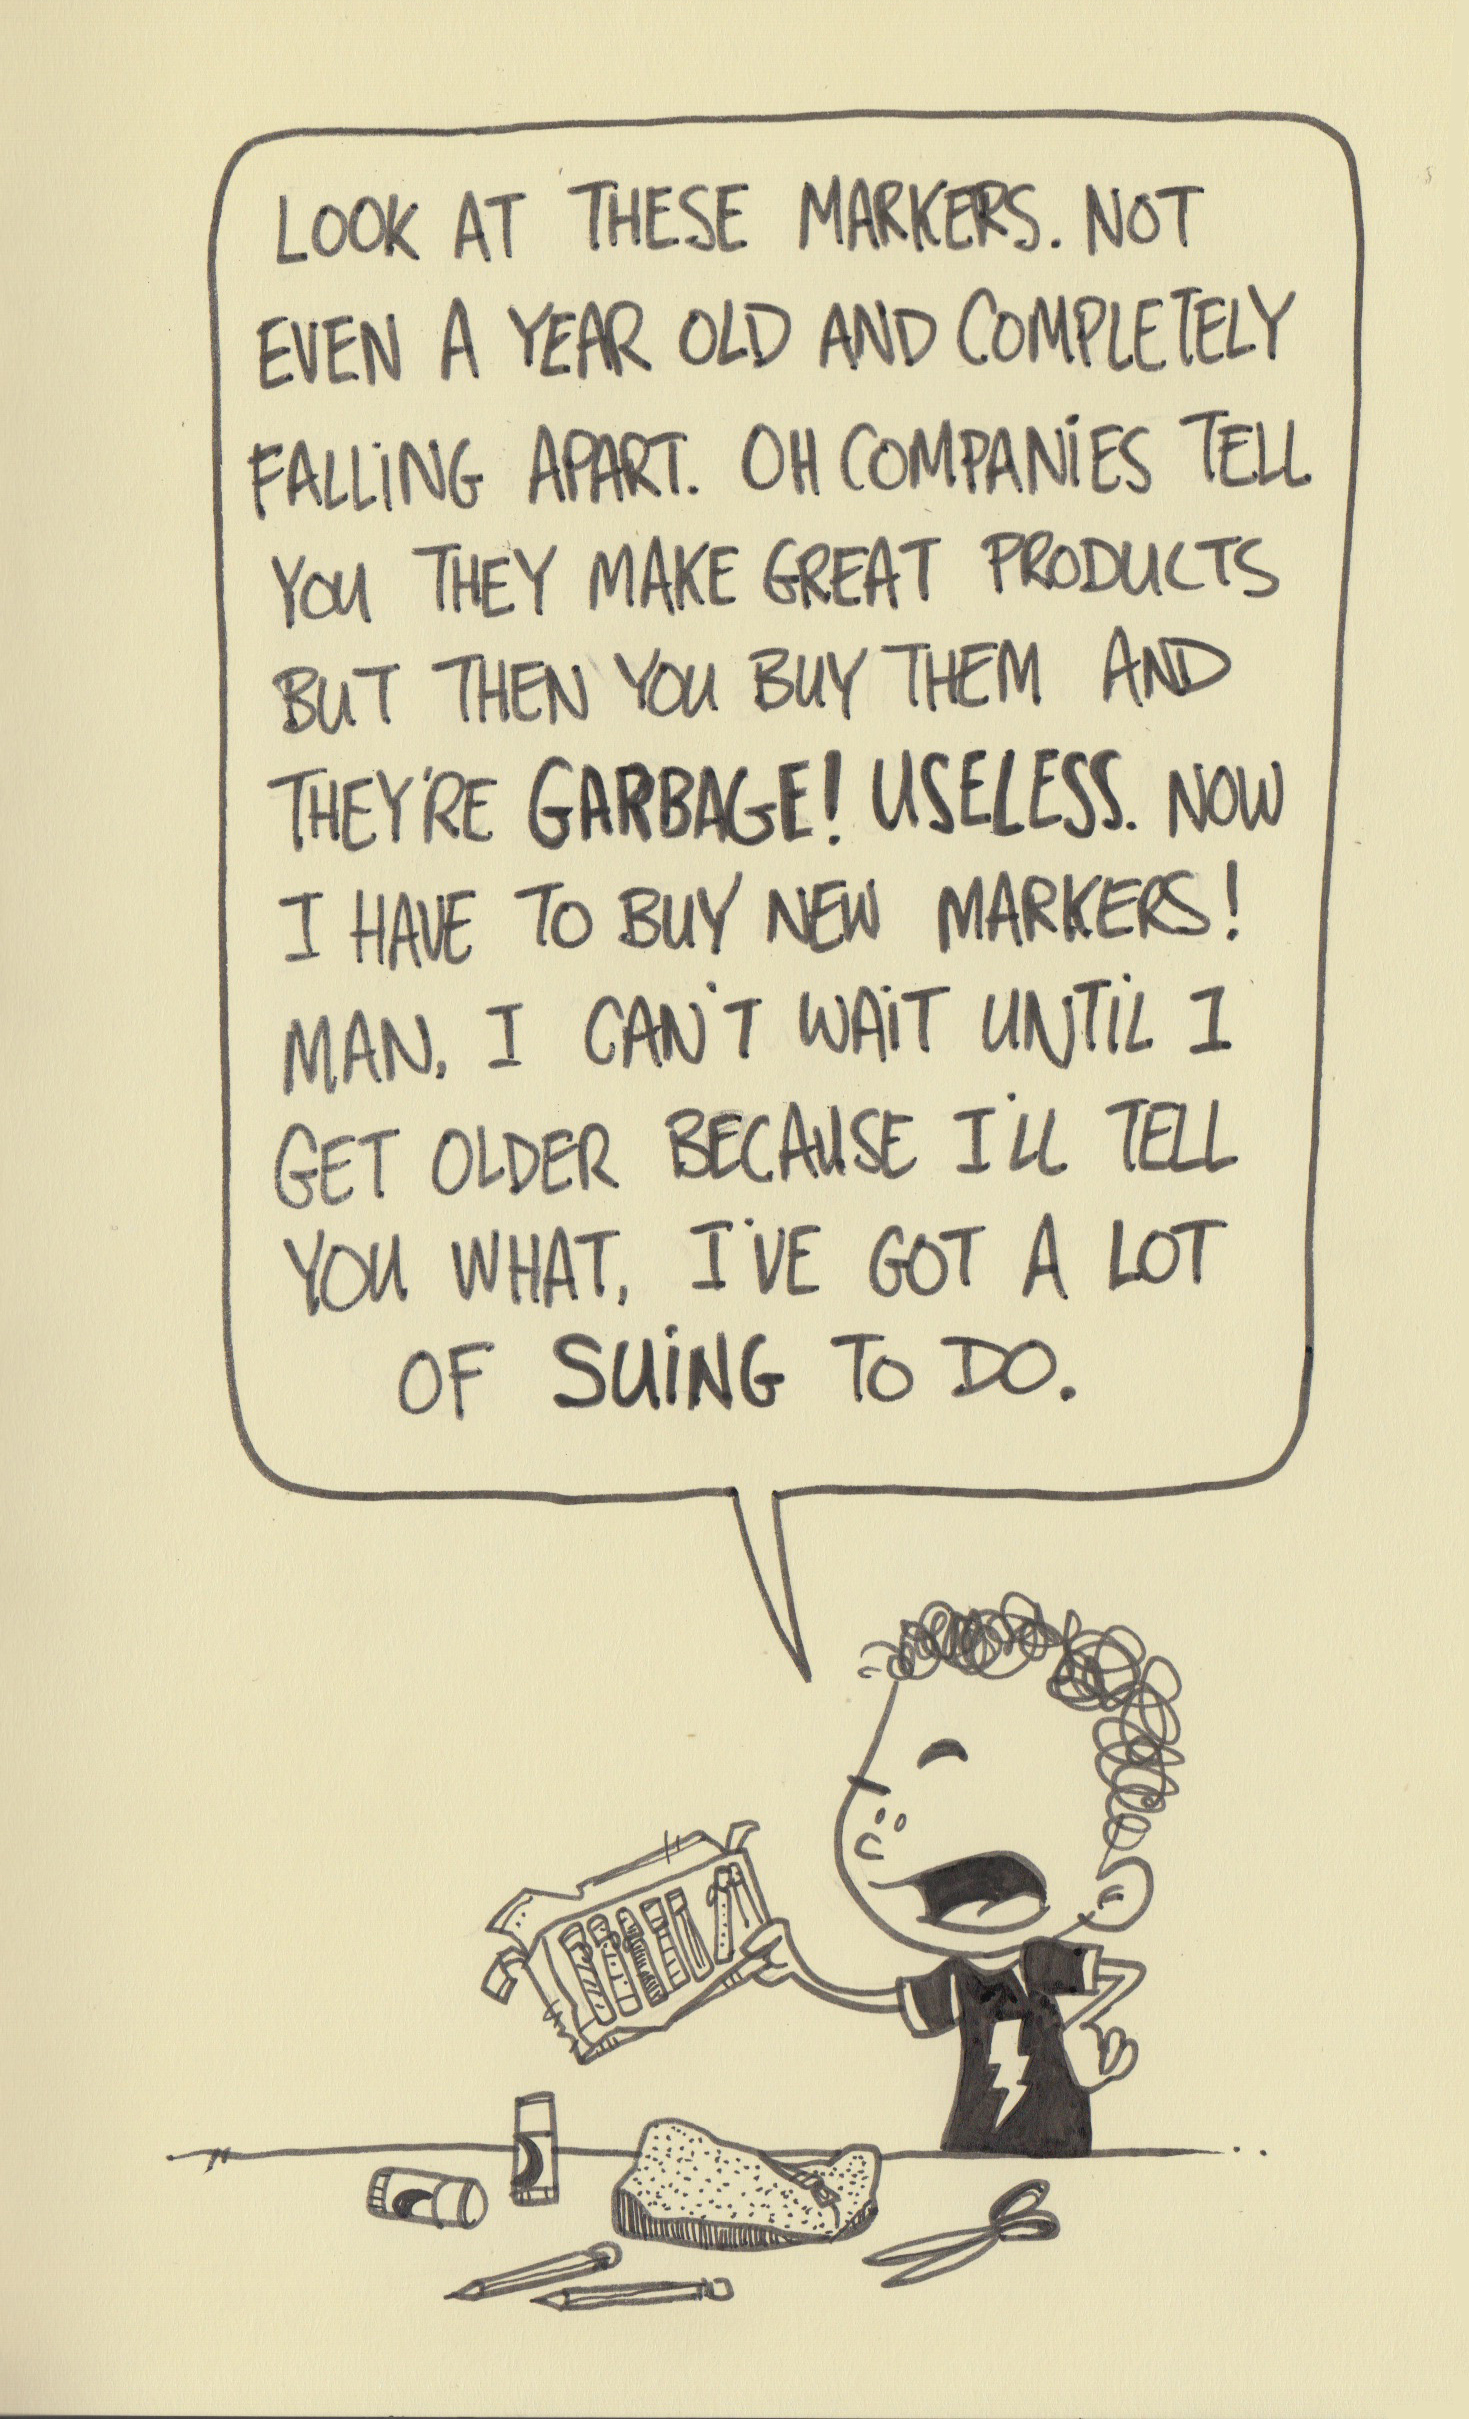 LOOK AT THESE MARKERS. NOT
EVEN A YEAR OLD AND COMPLETELY
FALLING APART. OH COMPANIES TELL
YOU THEY MAKE GREAT PRODUCTS
BUT THEN YOU BUY THEM AND
THEY'RE GARBAGE! USELESS. NOW
I HAVE TO BUY NEW MARKERS!
MAN, I CAN'T WAIT UNTIL I
GET OLDER BECAUSE I'LL TELL
YOU WHAT, I'VE GOT A LOT
OF SUING TO DO.